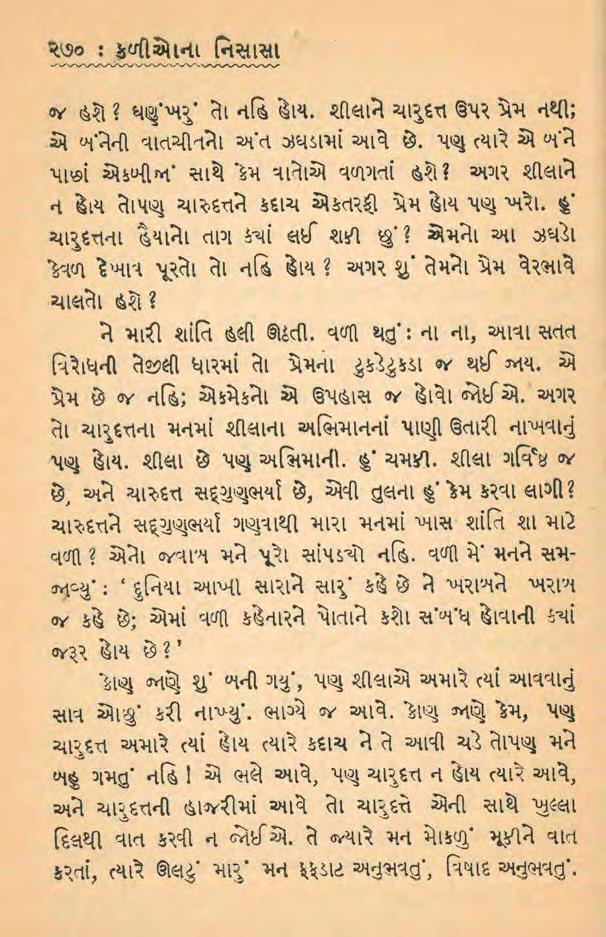 ૨૭૦ : કળીઓના નિસાસા
જ હશે? ઘણુંખરું તો નહિ હોય. શીલાને ચારુદત્ત ઉપર પ્રેમ નથી;
એ બંનેની વાતચીતનો અંત ઝઘડામાં આવે છે. પણ ત્યારે એ બંને
પાછાં એકબીજાં સાથે કેમ વાતોએ વળગતાં હશે? અગર શીલાને
ન હોય તોપણ ચારુદત્તને કદાચ એકતરફી પ્રેમ હોય પણ ખરો. હું
ચારુદત્તના હૈયાનો તાગ ક્યાં લઈ શકી છું? એમનો આ ઝઘડો
કેવળ દેખાવ પૂરતો તો નહિ હોય? અગર શું તેમનો પ્રેમ વેરભાવે
ચાલતો હશે?
ને મારી શાંતિ હલી ઊઠતી. વળી થતું: ના ના, આવા સતત
વિરોધની તેજીલી ધારમાં તો પ્રેમના ટુકડેટુકડા જ થઈ જાય. એ
પ્રેમ છે જ નહિ; એકમેકનો એ ઉપહાસ જ હોવો જોઈએ. અગર
તો ચારુદત્તના મનમાં શીલાના અભિમાનનાં પાણી ઉતારી નાખવાનું
પણ હોય. શીલા છે પણ અભિમાની. હું ચમકી. શીલા ગર્વિષ્ઠ જ
છે, અને ચારુદત્ત સદ્‌ગુણભર્યા છે, એવી તુલના હું કેમ કરવા લાગી?
ચારુદત્તને સદ્‌ગુણભર્યા ગણવાથી મારા મનમાં ખાસ શાંતિ શા માટે
વળી? એનો જવાબ મને પૂરો સાંપડ્યો નહિ. વળી મેં મનને સમ-
જાવ્યું: ‘દુનિયા આખી સારાને સારું કહે છે ને ખરાબને ખરાબ
જ કહે છે; એમાં વળી કહેનારને પોતાને કશો સંબંધ હોવાની ક્યાં
જરૂર હોય છે?’
કોણ જાણે શું બની ગયું, પણ શીલાએ અમારે ત્યાં આવવાનું
સાવ ઓછું કરી નાખ્યું. ભાગ્યે જ આવે. કોણ જાણે કેમ, પણ
ચારુદત્ત અમારે ત્યાં હોય ત્યારે કદાચ ને તે આવી ચડે તોપણ મને
બહુ ગમતું નહિ! એ ભલે આવે, પણ ચારુદત્ત ન હોય ત્યારે આવે,
અને ચારુદત્તની હાજરીમાં આવે તો ચારુદત્તે એની સાથે ખુલ્લા
દિલથી વાત કરવી ન જોઈએ. તે જ્યારે મન મોકળું મૂકીને વાત
કરતાં, ત્યારે ઊલટું મારું મન ફફડાટ અનુભવતું, વિષાદ અનુભવતું.